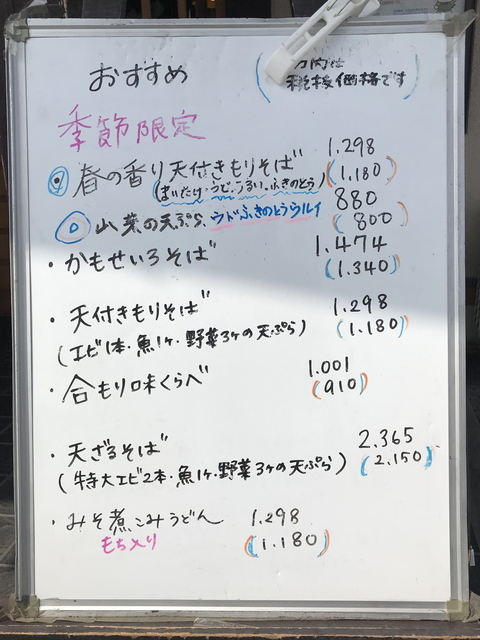 おすすめ
( )内は
税抜価格です
季節限定
春の香り天付きもりそば 1.298
(まいたけ・うど・うるい・ふきのとう) (1.180)
山菜の天ぷら ウドふきのとうウルイ 880
(800)
・かもせいろそば 1.474
(1.340)
・天付きもりそば 1.298
(エビ1本・魚1ヶ・野菜3ヶの天ぷら) (1.180)
・合もり味くらべ 1.001
(910)
・天ざるそば 2.365
(特大エビ2本・魚1ヶ・野菜3ヶの天ぷら) (2.150)
・みそ煮こみうどん 1.298
もち入り (1.180)